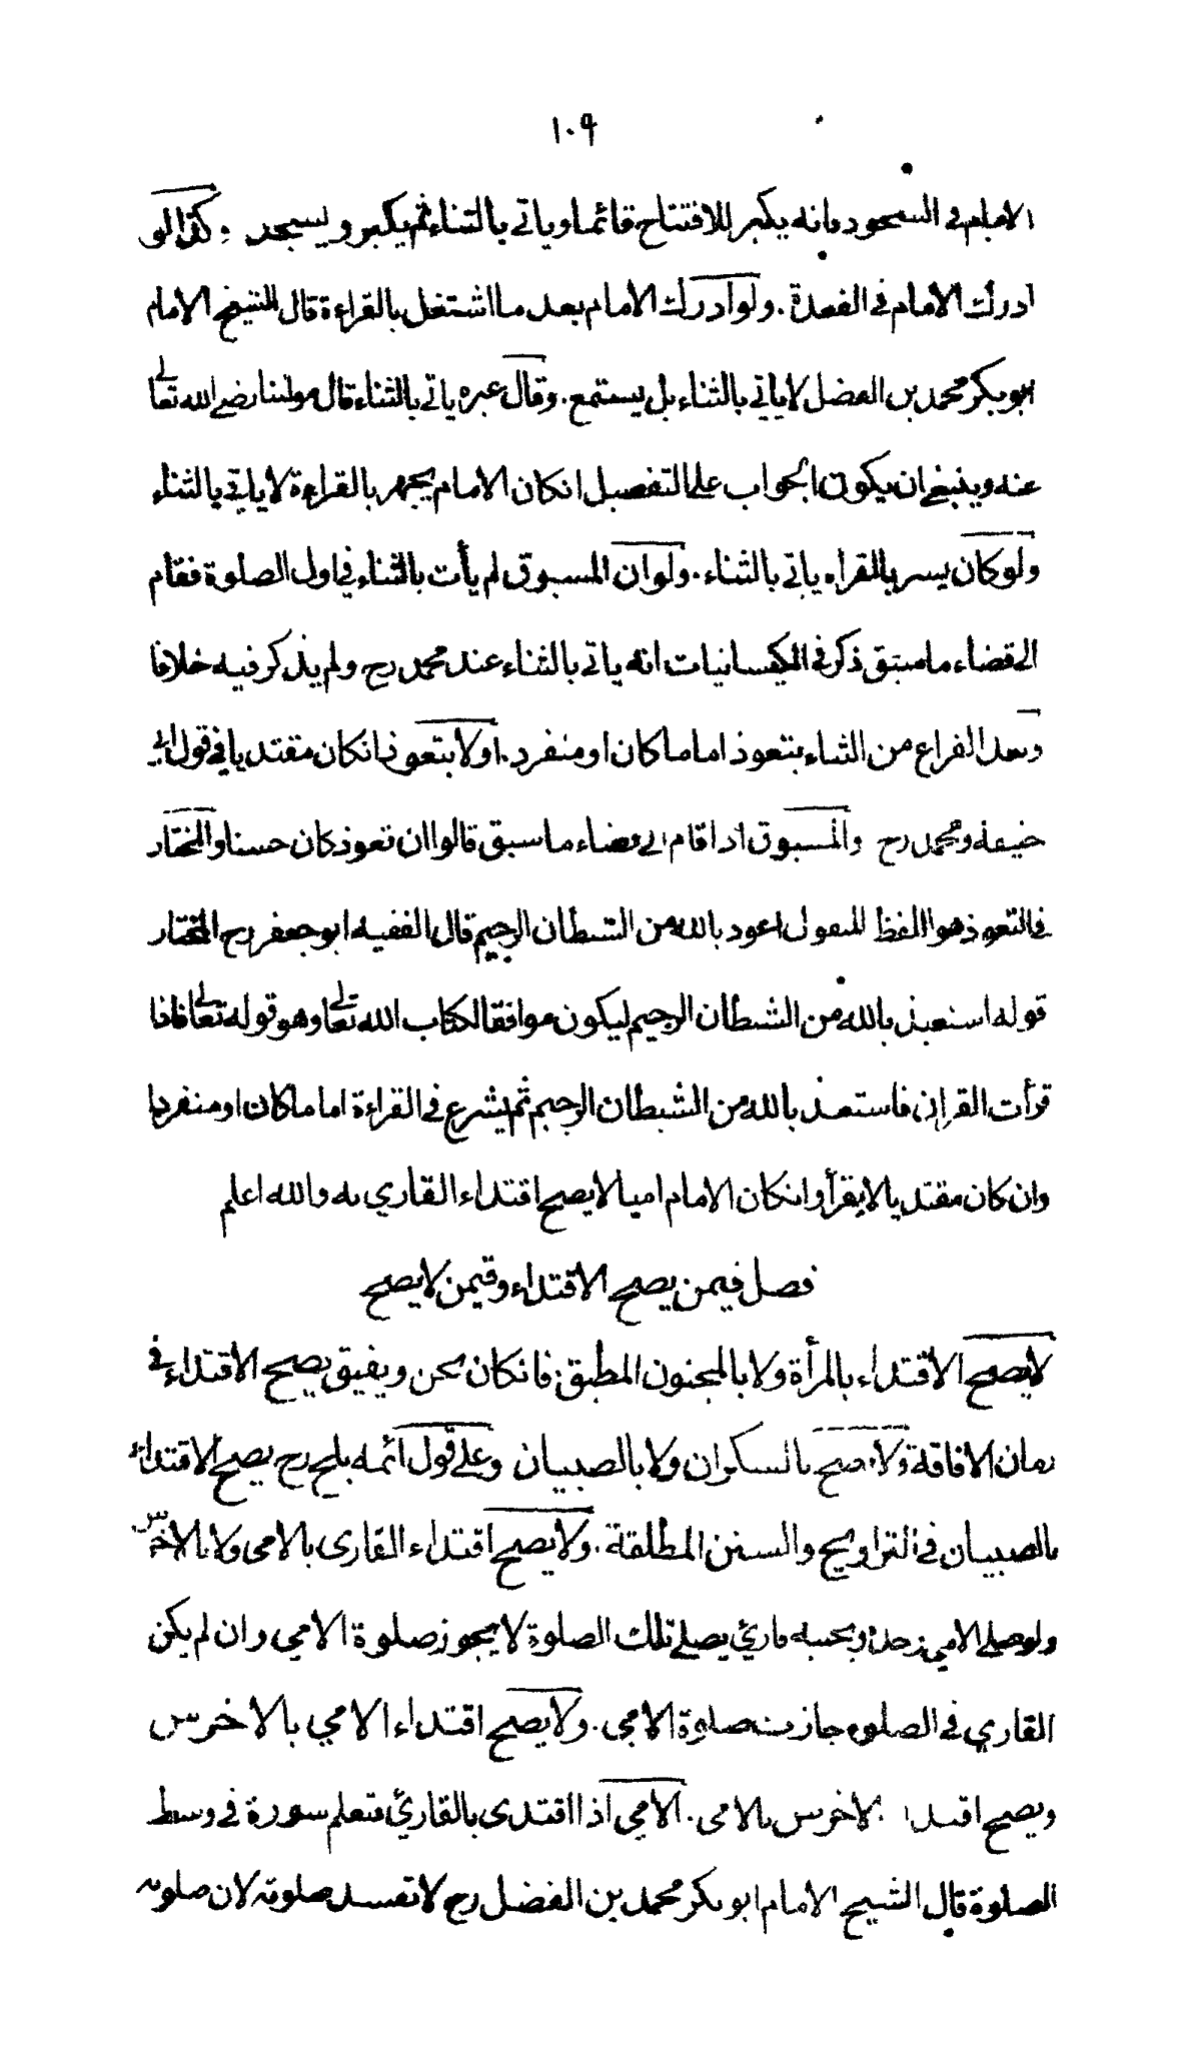 ١٠٩
الامام في السجود فانه يكبر للافتتاح قائما وياتي بالثناء ثم يكبر ويسجد وكذا لو
ادرك الامام في القعدة . ولو ادرك الامام بعد ما اشتغل بالقراءة قال الشيخ الامام
ابو بكر محمد بن الفضل لا ياتي بالثناء بل يستمع . وقال غيره ياتي بالثناء قال مولينا رضي الله تعالى
عنه وينبغي ان يكون الجواب على التفصيل انكان الامام يجهر بالقراءة لا ياتي بالثناء
ولو كان يسر بالقراه ياتي بالثناء . ولو ان المسبوق لم يأت بالثناء في اول الصلوة فقام
الى قضاء ما سبق ذكر في الكيسانيات انه ياتي بالثناء عند محمد رح ولم يذكر فيه خلافا
وبعد الفراغ من الثناء يتعوذ اماما كان او منفرد . اولا يتعوذ انكان مقتديا في قول ابي
حنيفة ومحمد رح والمسبوق اذا قام الى قضاء ما سبق قالوا ان تعوذ كان حسنا والمختار
في التعوذ هو اللفظ المنقول اعوذ بالله من الشيطان الرجيم قال الفقيه ابو جعفر رح المختار
قوله استعيذ بالله من الشيطان الرجيم ليكون موافقا لكتاب الله تعالى وهو قوله تعالى فاذا
قرأت القران فاستعذ بالله من الشيطان الرجيم ثم يشرع في القراءة اماما كان او منفردا
وان كان مقتديا لا يقرأ وانكان الامام اميا لا يصح اقتداء القاري به والله اعلم
فصل فيمن يصح الاقتداء وفيمن لا يصح
لا يصح الاقتداء بالمرأة ولا بالمجنون المطبق فانكان يجن ويفيق يصح الاقتداء في
زمان الافاقة ولا يصح بالسكران ولا بالصبيان وعلى قول ائمة بلخ رح يصح الاقتداء
بالصبيان في التراويح والسنن المطلقة . ولا يصح اقتداء القارى بالامى ولا بالاخرس
ولو صلى الامي وحده وبجنبه قارئ يصلي تلك الصلوة لا يجوز صلوة الامي وان لم يكن
القاري في الصلوه جازت صلوة الامي . ولا يصح اقتداء الامي بالاخرس
ويصح اقتداء الاخرس بالامى . الامي اذا اقتدى بالقارئ فتعلم سورة في وسط
الصلوة قال الشيخ الامام ابو بكر محمد بن الفضل رح لا تفسد صلوته لان صلوته